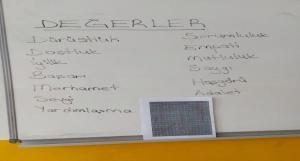 DEĞERLER
Dürüstlük
Dostluk
iyilik
Başarı
Merhamet
Sevgi
Yardımlaşma
Sorumluluk
Empati
Mutluluk
Saygı
Hoşgörü
Adalet